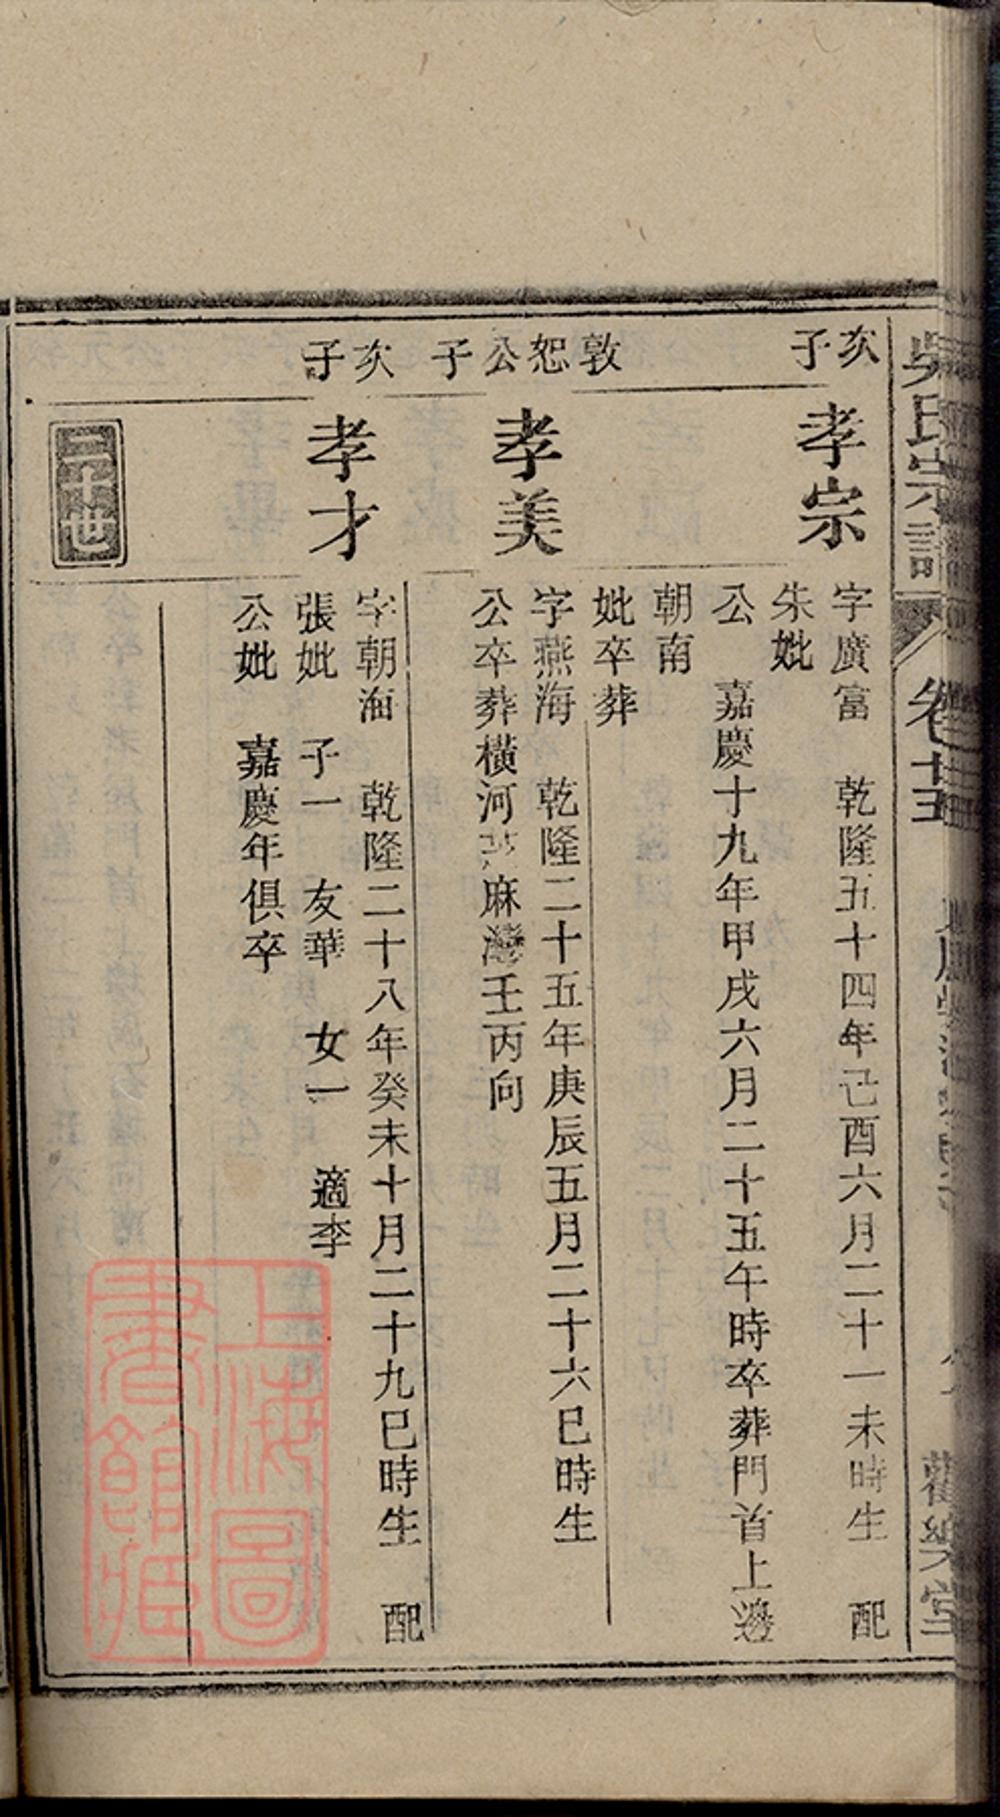 吳氏宗譜
卷廿五
亥子
孝宗
字廣富 乾隆五十四年己酉六月二十一未時生 配
朱妣
公 嘉慶十九年甲戌六月二十五午時卒葬門首上邊
朝南
妣卒葬
敦恕公子
孝美
字燕海 乾隆二十五年庚辰五月二十六巳時生
公卒葬橫河 麻灣壬丙向
次子
孝才
字朝 乾隆二十八年癸未十月二十九巳時生 配
張妣 子一 友華 女一 適李
公妣 嘉慶年俱卒
二十世
上海圖
書館藏